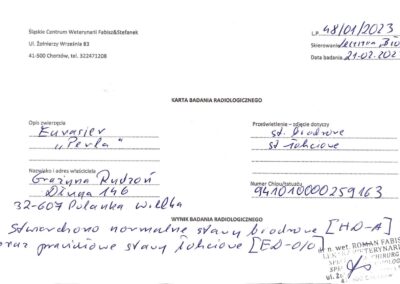 Śląskie Centrum Weterynarii Fabisz&Stefanek
Ul. Żołnierzy Września 83
41-500 Chorzów, tel. 322471208
L.P. 48/01/2023
Skierowanie
Data badania 21.02.2023
KARTA BADANIA RADIOLOGICZNEGO
Opis zwierzęcia
Eurasier
"Perła"
Prześwietlenie – zdjęcie dotyczy
st. biodrowe
st. łokciowe
Nazwisko i adres właściciela
Grażyna Rudzoń
Długa 146
32-607 Polanka Wielka
Numer Chipu/tatuażu
941010000259163
WYNIK BADANIA RADIOLOGICZNEGO
Stwierdzono normalne stawy biodrowe [HD-A]
oraz prawidłowe stawy łokciowe [ED-0/0]
n. wet. ROMAN FABIS